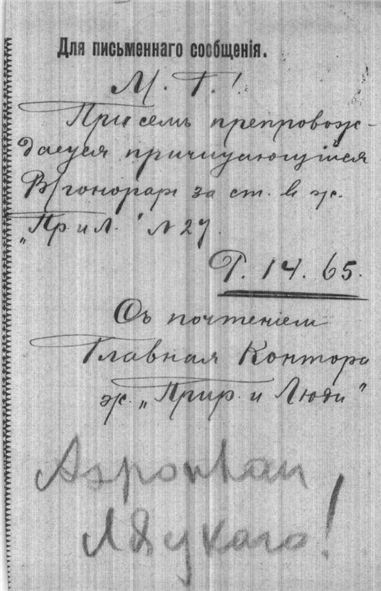 Для письменнаго сообщенія.
М. Г.!
При семъ препровож-
дается причитающійся
В/гонораръ за ст. въ ж.
„Пр. и Л." № 27.
Р. 14. 65.
Съ почтеніемъ
Главная Контора
ж. „Прир. и Люди"
Аэроплан
!